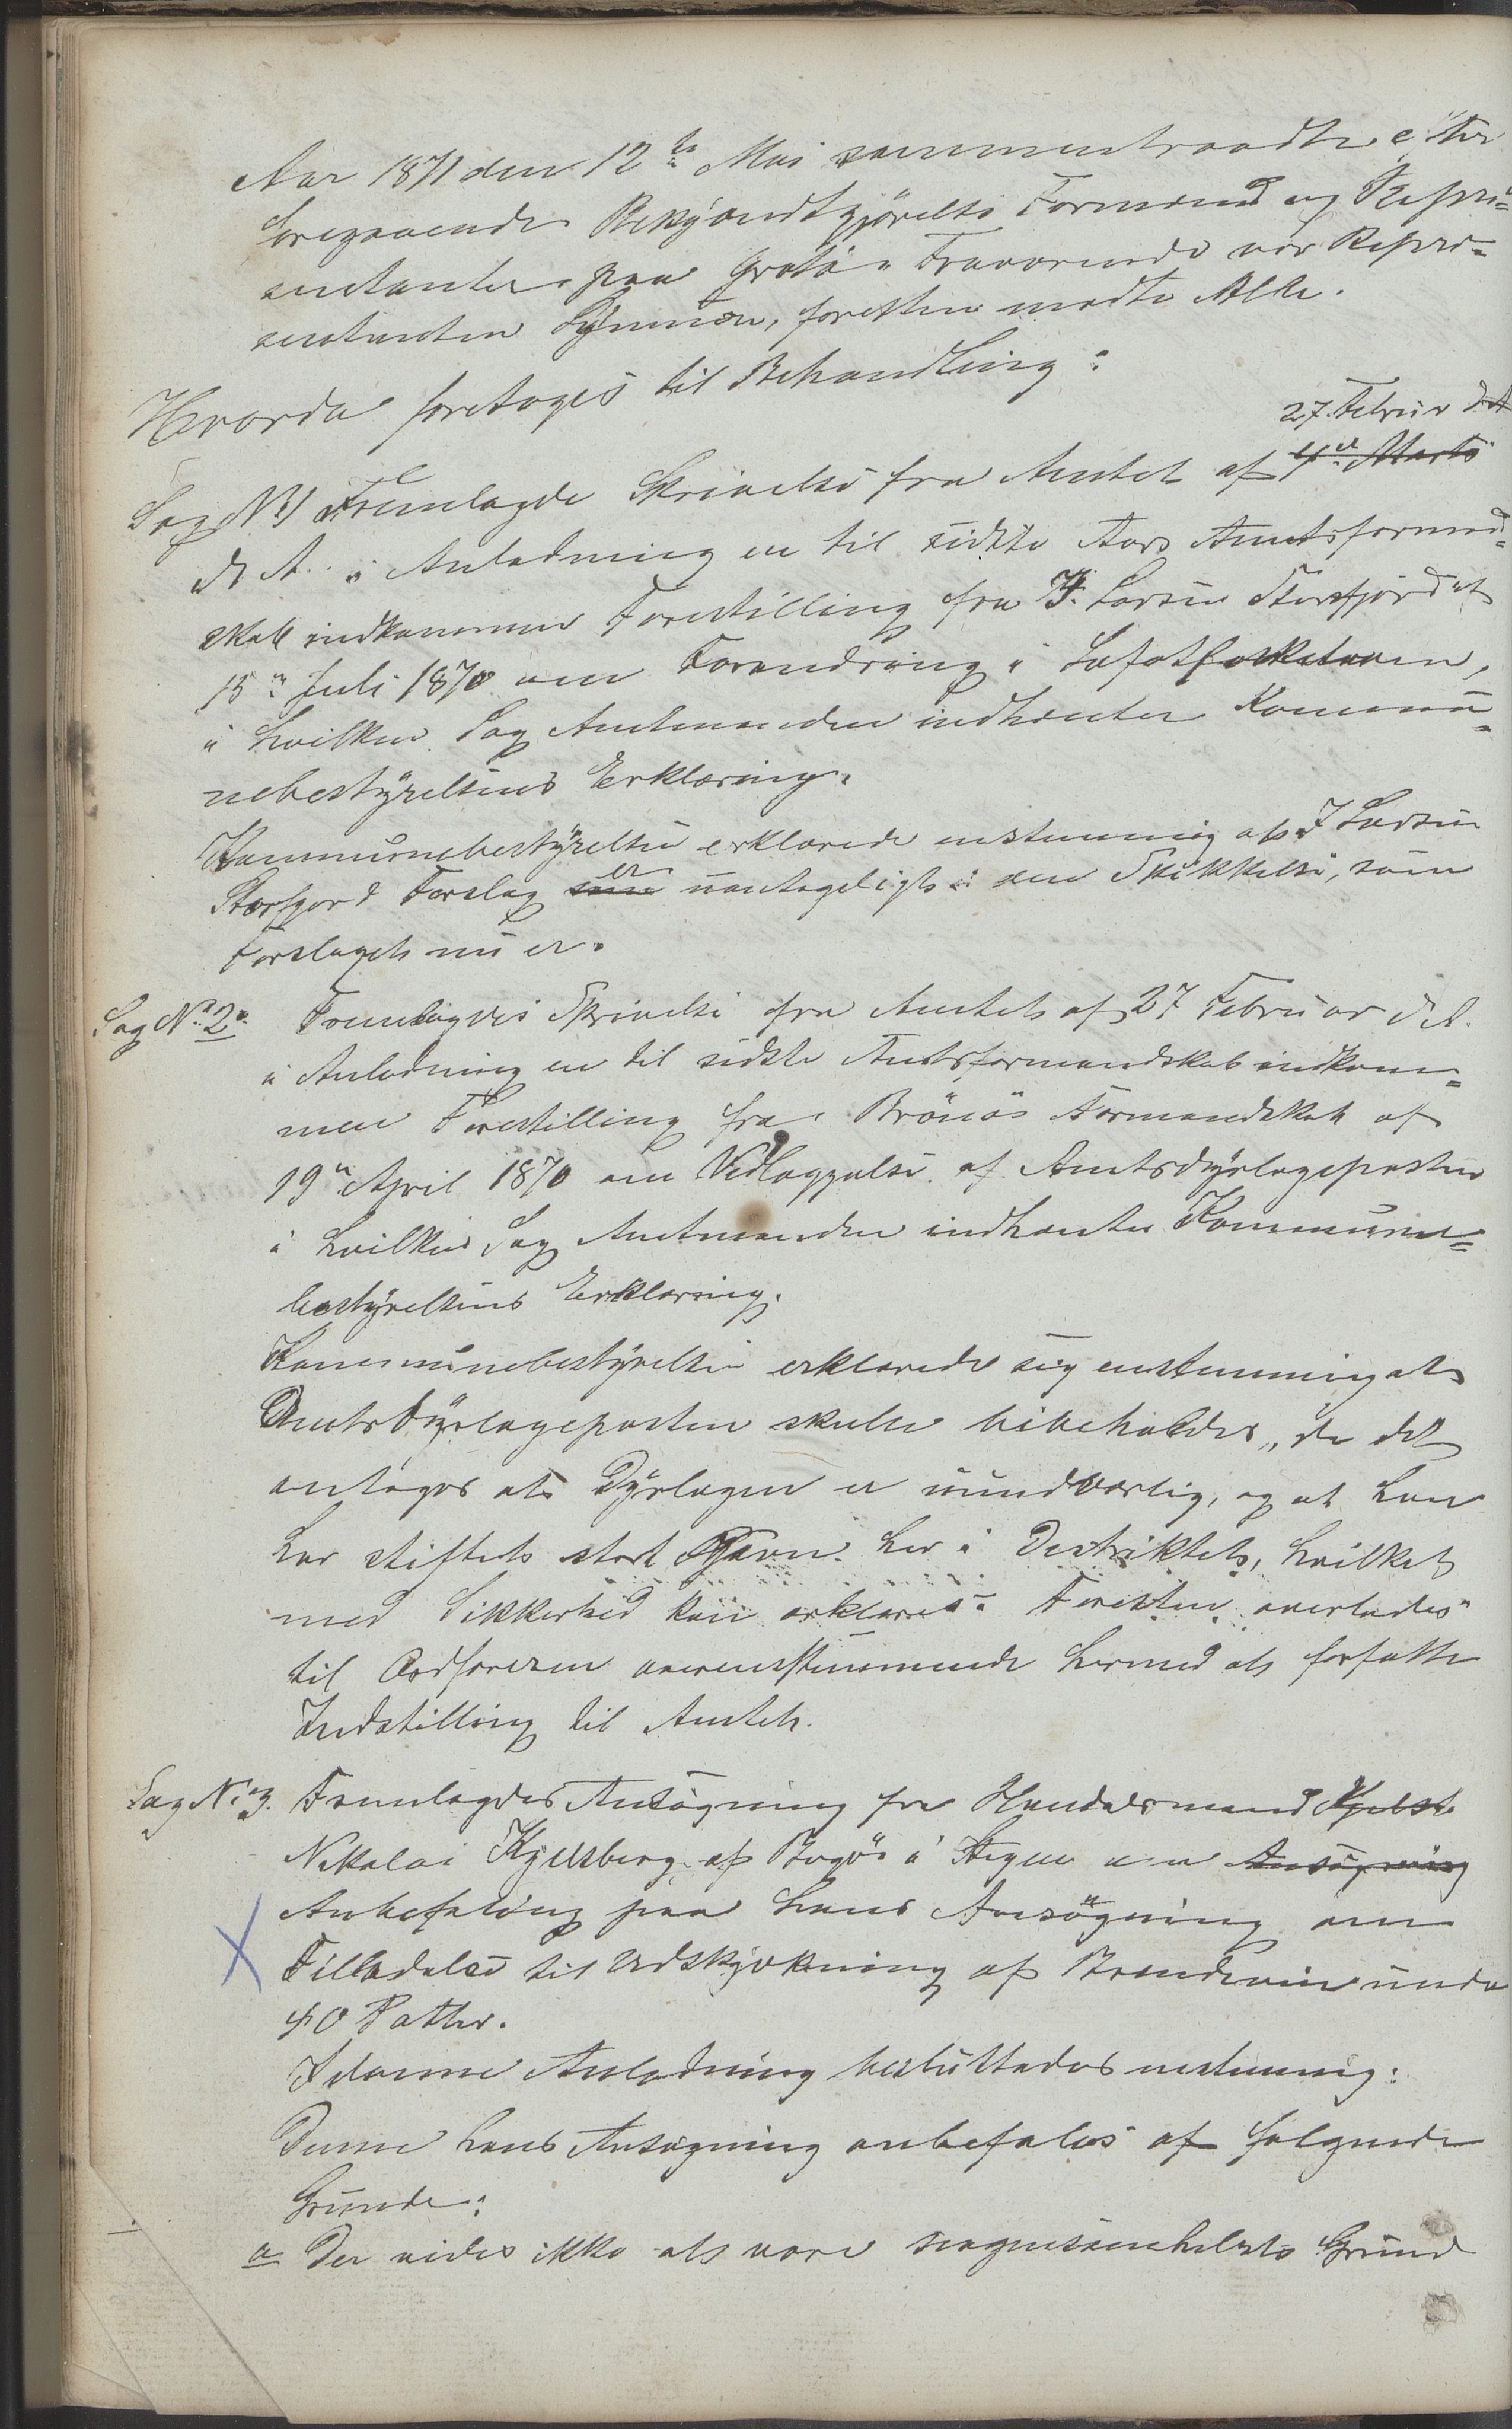 Aar 1871 den 12te Mai sammentraadte efter
foregaaende Bekjendtgjörelse Formænd og Repræ=
sentanter paa Grøtø. Fraværende var Repræ=
sentanten , foresten mødte Alle.
Hvorda foretoges til Behandling:
27. Februar d.A
Sag No 1 Fremlagde Skrivelse fra Amtet af 4de Marts
d. A. i Anledning en til sidste Aars Amtsformand=
skab indkommen Forestilling fra J. Larsen Storfjord af
15de Juli 1870 om Forandring i Lofotfiskeloven,
i hvilken Sag Amtmanden indhenter Kommu=
nebestyrelsens Erklæring.
Kommunebestyrelsen erklærede enstemmig at J Larsen
Storfjord Forslag som er uantageligt i den Skikkelse, som
Forslaget nu er.
Sag No 2. Fremlagdes Skrivelse fra Amtet af 27 Februar d.A.
i Anledning en til sidste Amtsformandskab indkom=
men Forestilling fra Brönös Formandskab af
19de April 1870 om Nedlæggelse af Amtsdyrlægeposten
i hvilken Sag Amtmanden indhenter Kommune=
bestyrelsens Erklæring.
Kommunebestyrelsen erklærede sig enstemmig at
Amtsdyrlægeposten skulle bibeholdes, da det
antages at Dyrlægen er uundværlig, og at han
har stiftet stort Gavn her i Destriktet, hvilket
med Sikkerhed kan erklæres. Foresten overlades
til Ordføreren overensstemmende hermed at forfatte
Indstilling til Amtet.
Sag No 3. Fremlagdes Ansøgning fra Handelsmand
Nikolai Kjelsberg af Bogø i Stegen om Ansøgning
Anbefaling paa hans Ansögning om
Tilladelse til Udskjænkning af Brændevin under
40 Potter.
I denne Anledning besluttedes enstemmig:
Denne hans Ansøgning anbefales af følgende
Grunde:
a Der vides ikke at være nogensomhelst Grund